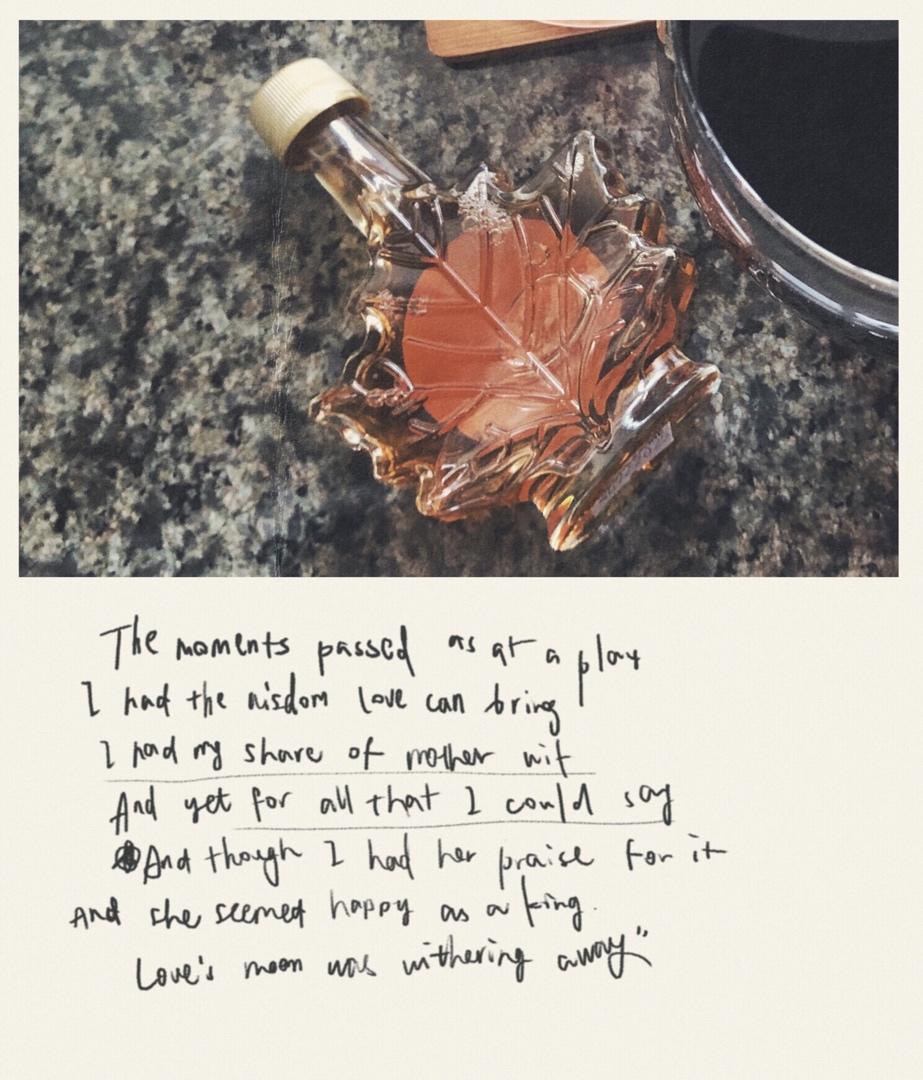 The moments passed as at a play
I had the wisdom love can bring
I had my share of mother wit
And yet for all that I could say
And though I had her praise for it
And she seemed happy as a king.
Love's moon was withering away"